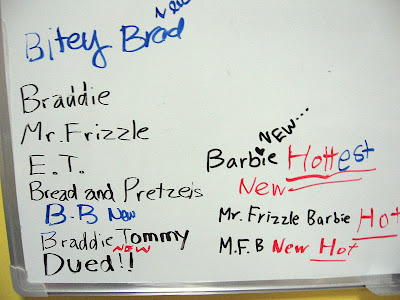 New
Bitey Brad
Braddie
Mr. Frizzle
E.T.
Bread and Pretzels
B.B New
Braddie Tommy
NEW
Dued!!
NEW...
Barbie Hottest
New
Mr. Frizzle Barbie Hot
M.F.B New Hot